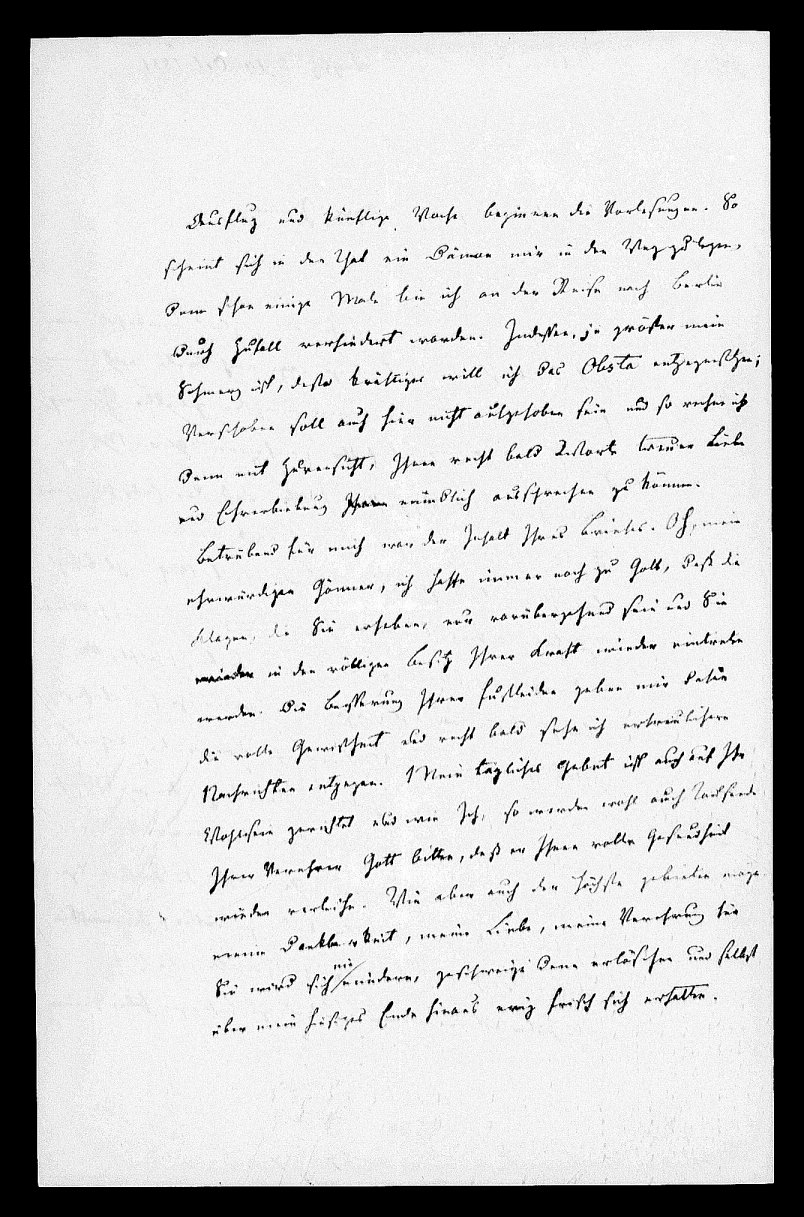 Ausflug und künftige Woche beginnen die Vorlesungen. So
scheint sich in der That ein Dämon mir in den Weg zu legen,
denn schon einige Male bin ich an der Reise nach Berlin
durch Zufall verhindert worden. Indessen, je größer mein
Schmerz ist, desto kräftiger will ich das Obsta entgegensetzen;
Verschoben soll auch hier nicht aufgehoben sein und so rechne ich
denn mit Zuversicht, Ihnen recht bald Worte treuer Liebe
und Ehrerbietung mündlich aussprechen zu können.
Betrübend für mich war der Inhalt Ihres Briefes. Oh, mein
ehrwürdigen Gönner, ich hoffe immer noch zu Gott, daß die
Klagen, die Sie erheben, nur vorübergehend sein und Sie
wieder in den völligen Besitz Ihrer Kraft wieder eintreten
werden. Die Besserung Ihrer Fußleiden geben mir
die volle Gewißheit und recht bald sehe ich erfreulichere
Nachrichten entgegen. Mein tägliches Gebet ist auch auf Ihr
Wohlsein gerichtet und wie Ich, so werden wohl auch Tausende
Ihrer Verehrer Gott bitten, daß er Ihnen volle Gesundheit
wieder verleihe. Wie aber auch der Höchste gebieten möge
meine Dankbarkeit, meine Liebe, meine Verehrung für
Sie wird sich nie mindern, geschweige denn erlöschen und selbst
über mein hiesiges Ende hinaus ewig frisch sich erhalten.